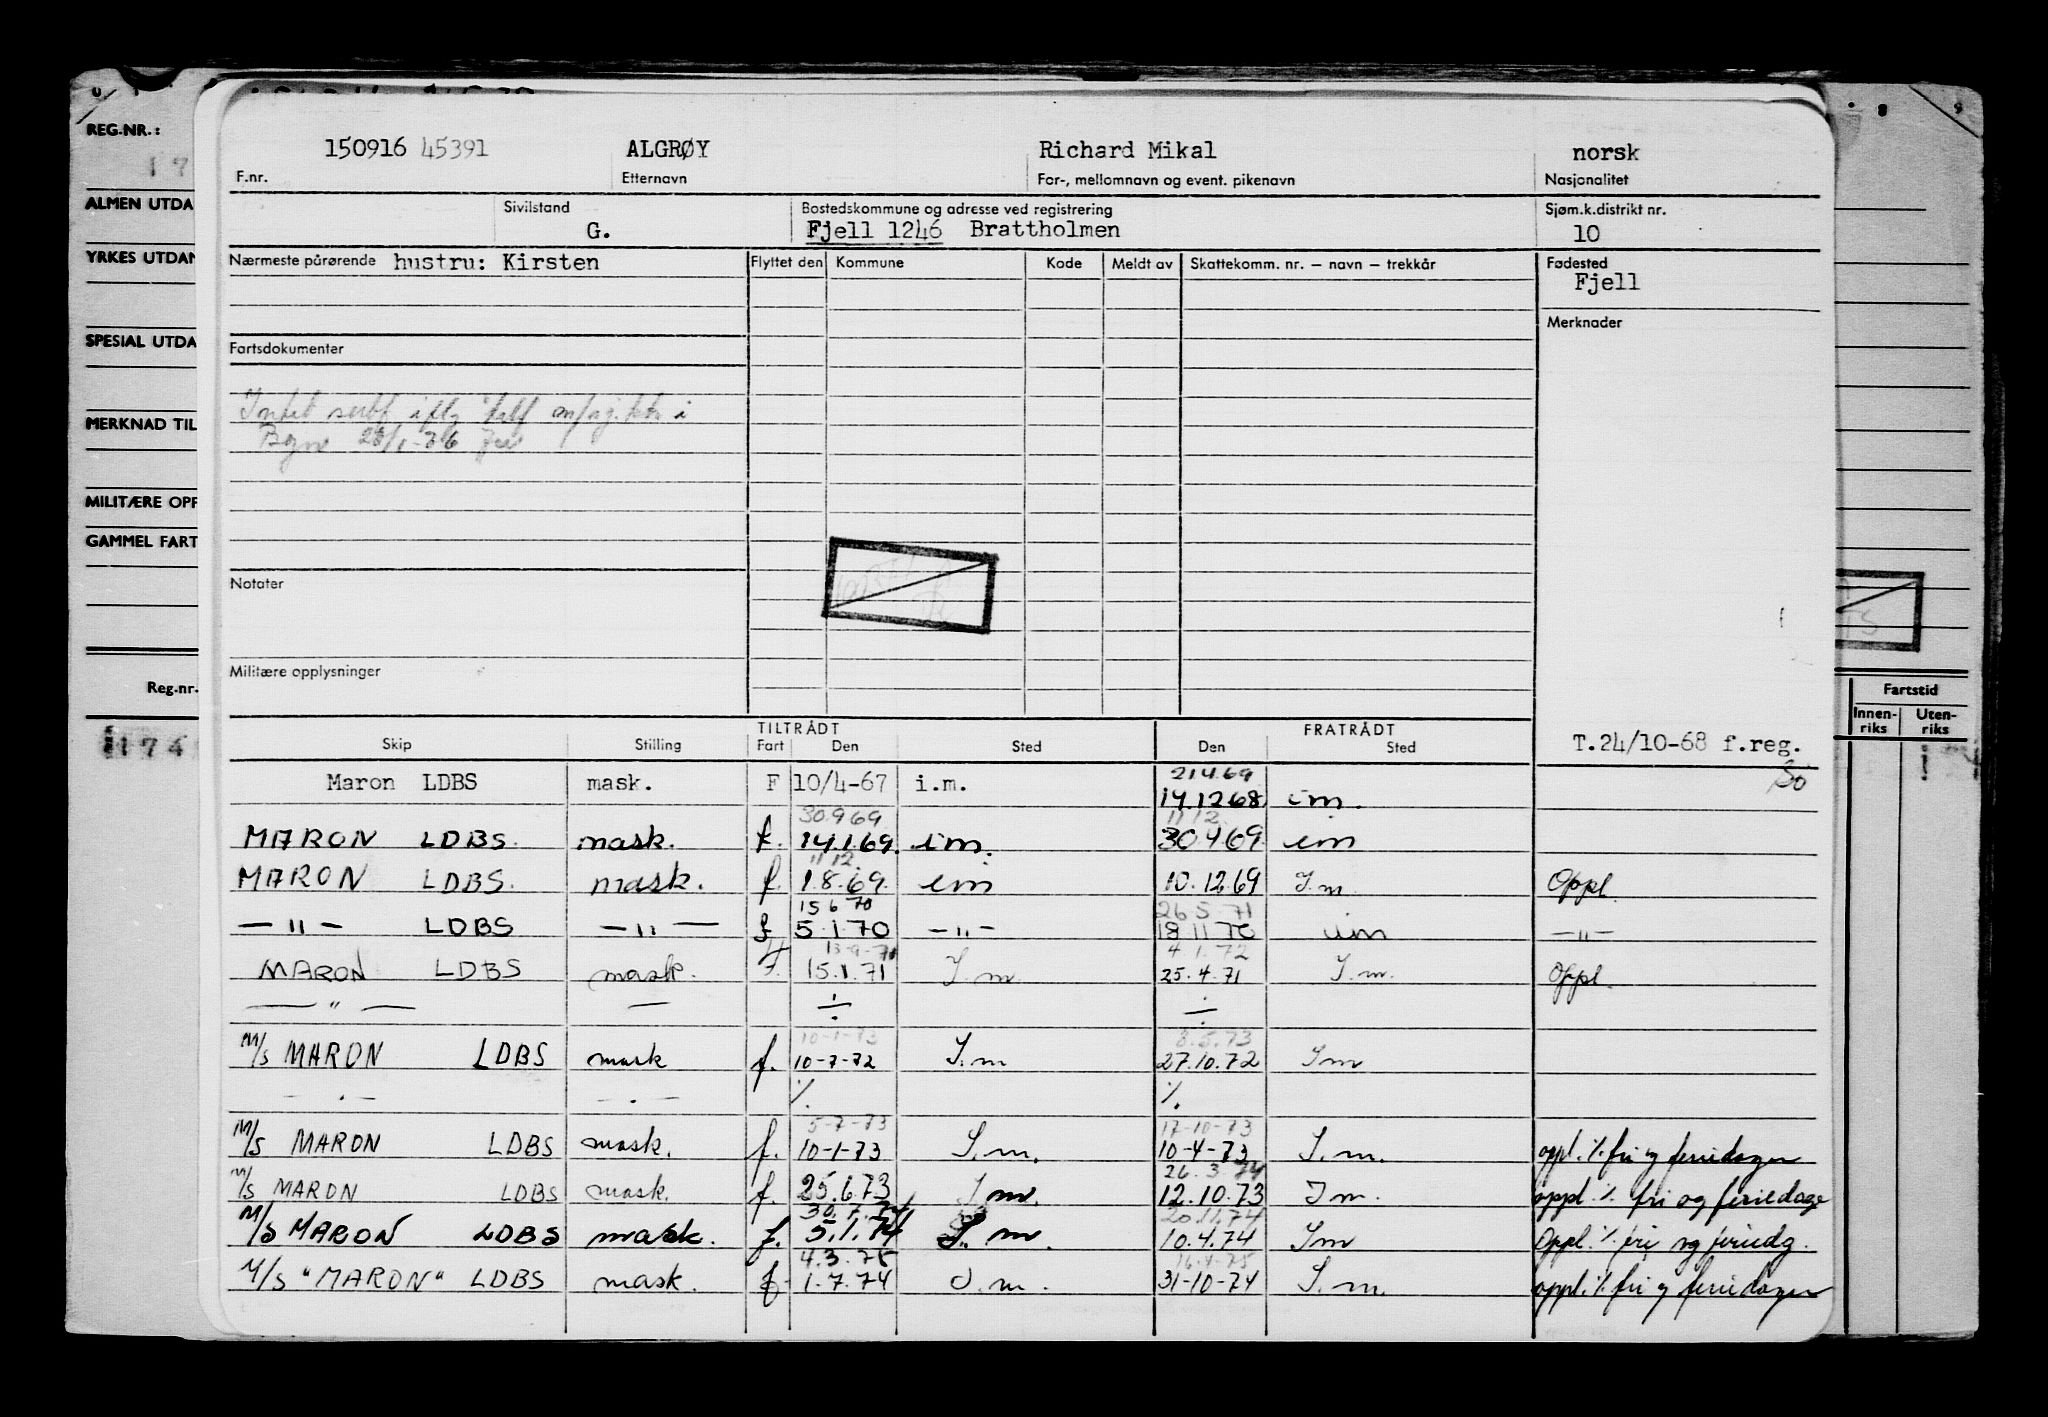 REG.NR.:
ALMEN UTDA
YRKES UTDAN
SPESIAL UTDA
MERKNAD TIL
MILITÆRE OPP
GAMMEL FART
Reg.nr.
1174
150916 45391 ALGRØY Richard Mikal norsk
F.nr. Etternavn For-, mellomnavn og event. pikenavn Nasjonalitet
Sivilstand Bostedskommune og adresse ved registrering Sjøm.k.distrikt nr.
G. Fjell 1246 Brattholmen 10
Nærmeste pårørende hustru: Kirsten Flyttet den Kommune Kode Meldt av Skattekomm. nr. – navn – trekkår Fødested
Fjell
Merknader
Fartsdokumenter
Notater
Militære opplysninger
TILTRÅDT FRATRÅDT
Skip Stilling Fart Den Sted Den Sted T.24/10-68 f.reg.
21.4.69
Maron LDBS mask. F 10/4-67 i.m. 14.12.68 i.m.
30.9.69 11/12.
MARON LDBS. mask. f. 14.1.69. i.m. 30.4.69. im
11/12.
MARON LDBS. mask. f. 1.8.69. im 10.12.69 I.m. Oppl.
15 6 70 26.5.71
— " — LDBS — " — f 5.1.70 — " — 18.11.70 im — " —
13-9-71 4.1.72
MARON LDBS mask. F. 15.1.71 I.m 25.4.71 I.m. Oppl.
— " — — ÷ ÷
10-1-73 8.5.73
M/S MARON LDBS mask f. 10-7-72 I.m 27.10.72 I m
— . — — . — %. %.
5-7-73 17-10-73
M/S MARON LDBS mask. f. 10-1-73 I.m. 10-4-73 I.m. oppl. % fri og feriedager
26.3.74
M/S MARON LDBS mask. f. 25.6.73 I.m. 12.10.73 I m. oppl. % fri og feriedage
30.7.74 20.11.74
M/S MARON LDBS mask. f. 5.1.74 I. m. 10.4.74 I m Oppl. % fri og feriedg.
4.3.75 16.4.75
M/S "MARON" LDBS mask. f 1.7.74 I.m. 31-10-74 I.m. oppl. % fri og feriedager
Fartstid
Innen-riks Uten-riks